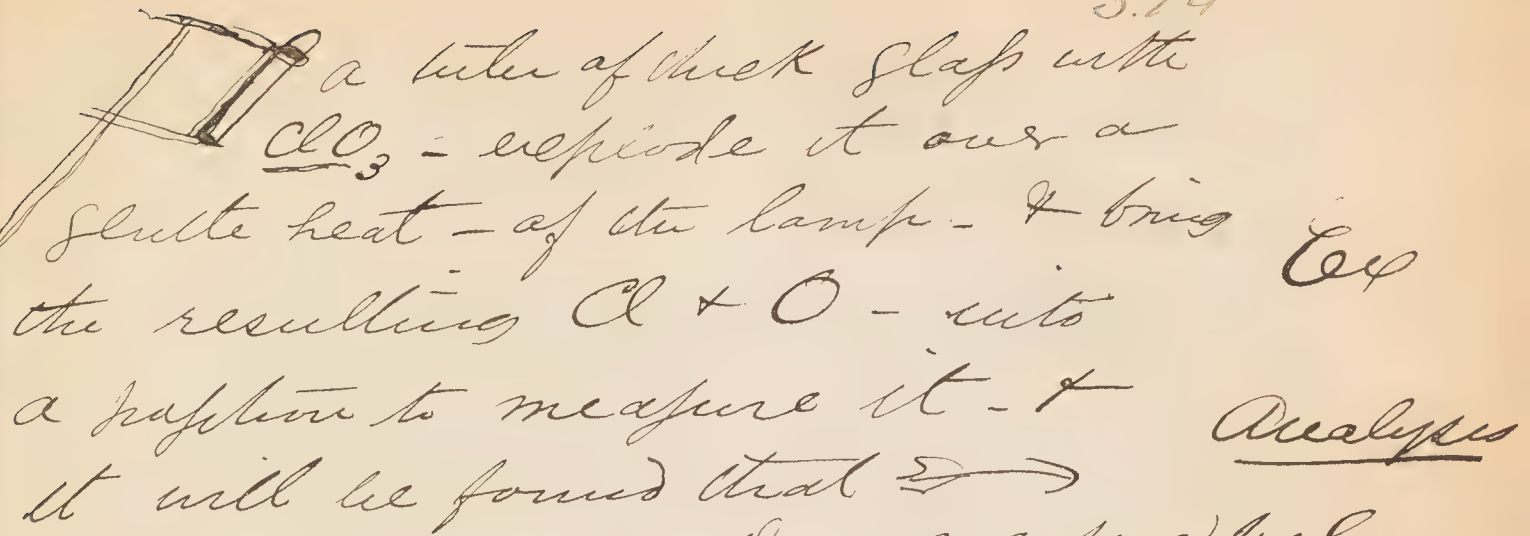 a tube of thick glaſs with
ClO₃ - explode it over a
gentle heat - of the lamp - & bring
Ex
the resulting Cl & O - into
a poſition to meaſure it - &
Analysis
it will be found that